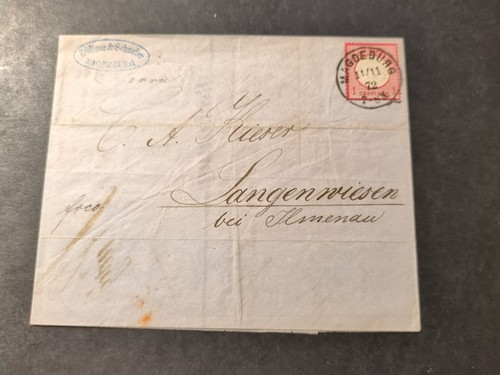 & Schneider
MAGDEBURG
MAGDEBURG
11/11
72
1
C. A. Kiever
Langenwiesen
bei Ilmenau
frco